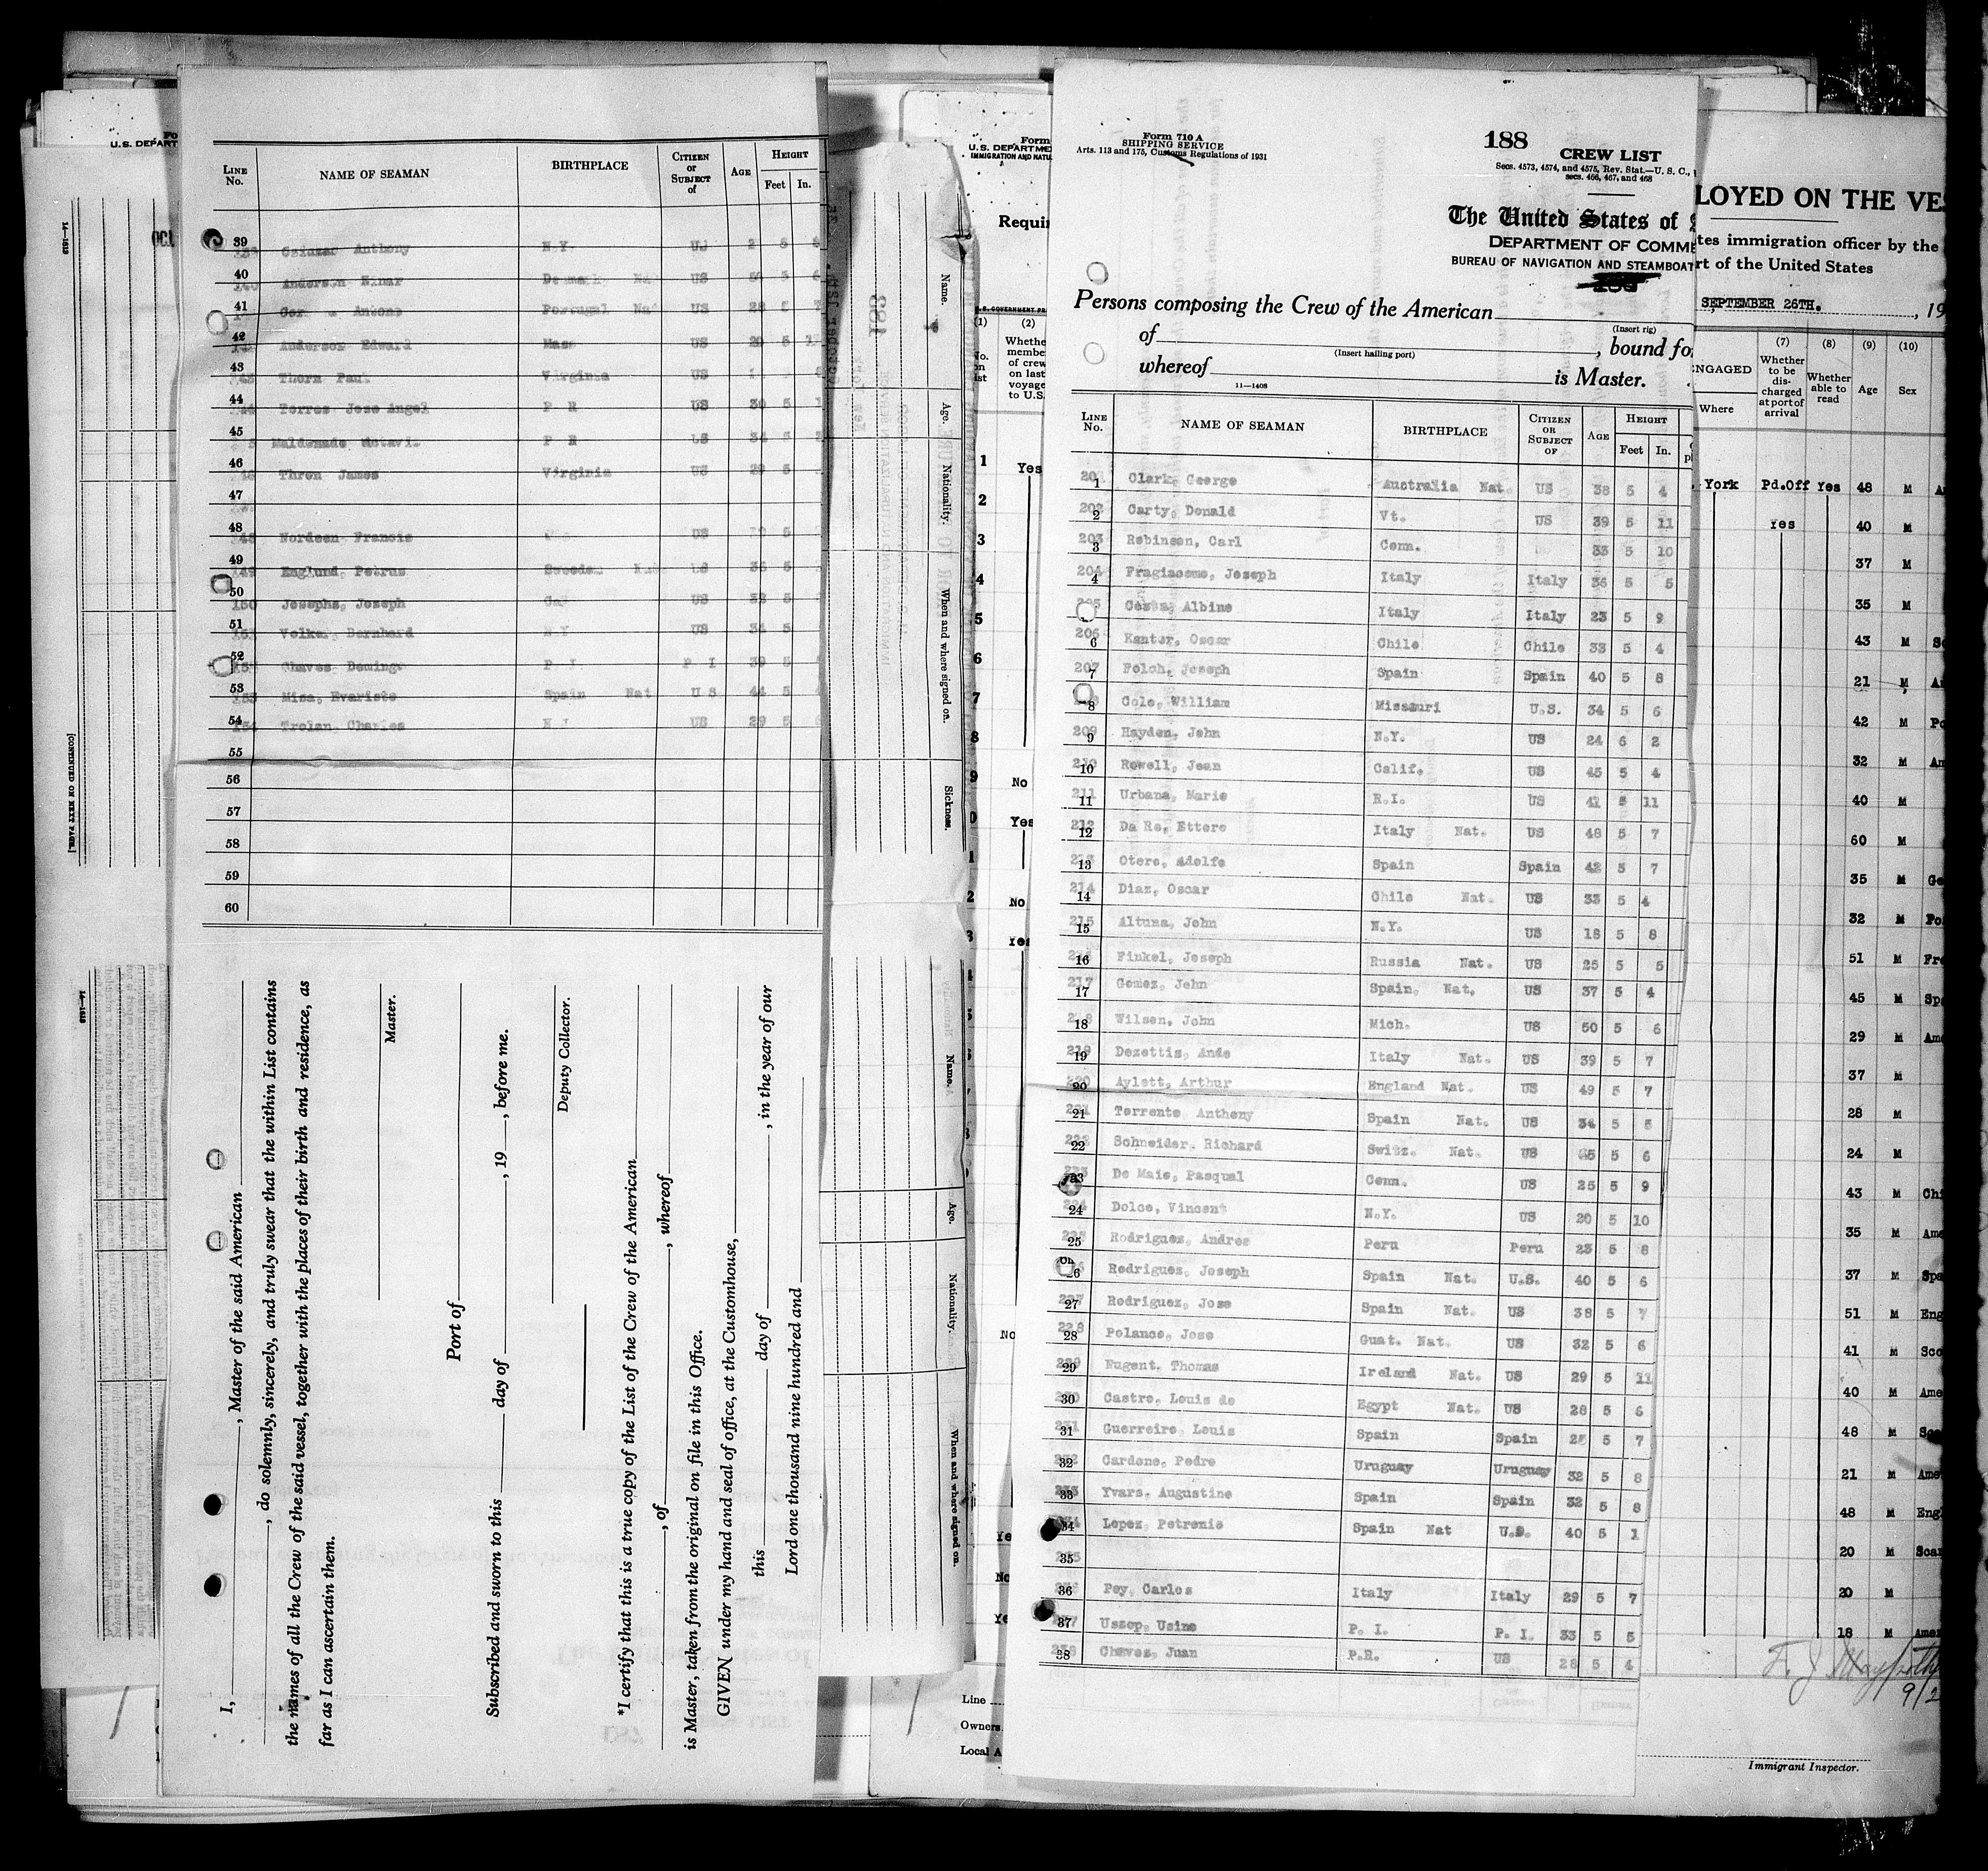 LINE No. NAME OF SEAMAN BIRTHPLACE CITIZEN OR SUBJECT of AGE HEIGHT Feet In.
39 Anthony N.Y.
40 Anderson Einar Denmark Na US 5
41 Antone Portugal Na US 28 5
42 Anderson Edward Mass US 5
43 Thorn Paul Virginia US
44 Torres Jose Angel P R US 30 5
45 Maldonado P R US 34 5
46 Thren James Virginia US 29 5
47
48 Nordeen Francis US
49 Englund, Petrus Sweden US 5
50 Josephs, Joseph US 32 5
51 Bernhard N.Y US 34 5
52 Chaves, Domingo P. I. P I 39 5
53 Misa, Evaristo Spain Nat U S 44 5
54 Trolan, Charles N J US 29 5
55
56
57
58
59
60
I, , Master of the said American
, do solemnly, sincerely, and truly swear that the within List contains
the names of all the Crew of the said vessel, together with the places of their birth and residence, as
far as I can ascertain them.
Master.
Port of
Subscribed and sworn to this day of , 19 , before me.
Deputy Collector.
*I certify that this is a true copy of the List of the Crew of the American
, of , whereof
is Master, taken from the original on file in this Office.
GIVEN under my hand and seal of office, at the Customhouse,
this day of , in the year of our
Lord one thousand nine hundred and
[CONTINUED ON NEXT PAGE.]
14—1613
U.S. DEPART
Name.
Age.
Nationality.
When and where signed on.
Sickness.
Name.
Age.
Nationality.
When and where signed on.
Form
U.S. DEPARTME
IMMIGRATION AND NATU
Requir
(1) (2)
Whethe
membe
of crew
on last
voyage
to U.S.
Yes
No
Yes
No
Yes
No
Line
Owners
Local A
Form 710 A
SHIPPING SERVICE
Arts. 113 and 175, Customs Regulations of 1931
188
CREW LIST
Secs. 4573, 4574, and 4575, Rev. Stat.—U. S. C.,
secs. 466, 467, and 468
The United States of
DEPARTMENT OF COMME
BUREAU OF NAVIGATION AND STEAMBOAT
Persons composing the Crew of the American
(Insert rig)
of , bound fo
(Insert hailing port)
whereof is Master.
11—1408
LINE No. NAME OF SEAMAN BIRTHPLACE CITIZEN OR SUBJECT OF AGE HEIGHT Feet In.
201 1 Clark, George Australia Nat US 38 5 4
202 2 Carty, Donald Vt. US 39 5 11
203 3 Robinson, Carl Conn. 33 5 10
204 4 Fragiacomo, Joseph Italy Italy 36 5 5
Costa, Albino Italy Italy 23 5 9
206 6 Kanter, Oscar Chile Chile 33 5 4
207 7 Folch, Joseph Spain Spain 40 5 8
8 Cole, William Missouri U.S. 34 5 6
209 9 Hayden, John N.Y. US 24 6 2
210 10 Rowell, Jean Calif. US 45 5 4
211 11 Urbana, Marie R.I. US 41 5 11
212 12 Da Re, Ettore Italy Nat. US 48 5 7
213 13 Otero, Adolfo Spain Spain 42 5 7
214 14 Diaz, Oscar Chile Nat. US 33 5 4
215 15 Altuna, John N.Y. US 18 5 8
16 Finkel, Joseph Russia Nat. US 25 5 5
217 17 Gomez, John Spain, Nat, US 37 5 4
218 18 Wilson, John Mich. US 50 5 6
219 19 Dezettis, Ande Italy Nat. US 39 5 7
220 20 Aylett, Arthur England Nat. US 49 5 7
221 21 Torrente, Anthony Spain Nat. US 34 5 5
222 22 Schneider, Richard Switz. Nat. US 5 6
De Maie, Pasqual Conn. US 25 5 9
224 24 Dolce, Vincent N.Y. US 20 5 10
225 25 Rodriguez, Andres Peru Peru 23 5 8
26 Rodriguez, Joseph Spain Nat. U.S. 40 5 6
227 27 Rodriguez, Jose Spain Nat. US 38 5 7
228 28 Polanco, Jose Guat. Nat. US 32 5 6
229 29 Nugent, Thomas Ireland Nat. US 29 5 11
230 30 Castro, Louis de Egypt Nat. US 28 5 6
231 31 Guerreiro, Louis Spain Spain 25 5 7
232 32 Cardono, Pedro Uruguay Uruguay 32 5 8
233 33 Yvars, Augustine Spain Spain 32 5 8
34 Lopez, Petronio Spain Nat U.S. 40 5 1
235 35
36 Poy, Carlos Italy Italy 29 5 7
37 Uszop, Usine P. I. P. I. 33 5 5
238 38 Chaves, Juan P.R. US 28 5 4
LOYED ON THE VES
tes immigration officer by the
rt of the United States
SEPTEMBER 26TH. , 19
(7) (8) (9) (10)
NGAGED
Where
Whether to be discharged at port of arrival
Whether able to read
Age
Sex
York Pd.Off Yes 48 M
Yes 40 M
37 M
35 M
43 M
21 M
42 M Po
32 M Am
40 M
60 M
35 M Ge
32 M Po
51 M Fre
45 M Spa
29 M Ame
37 M
28 M
24 M
43 M Chi
35 M Ame
37 M Spa
51 M Eng
41 M Sco
40 M Ame
48 M
21 M Ame
48 M Engl
20 M Scan
20 M
18 M Amer
9/2
Immigrant Inspector.